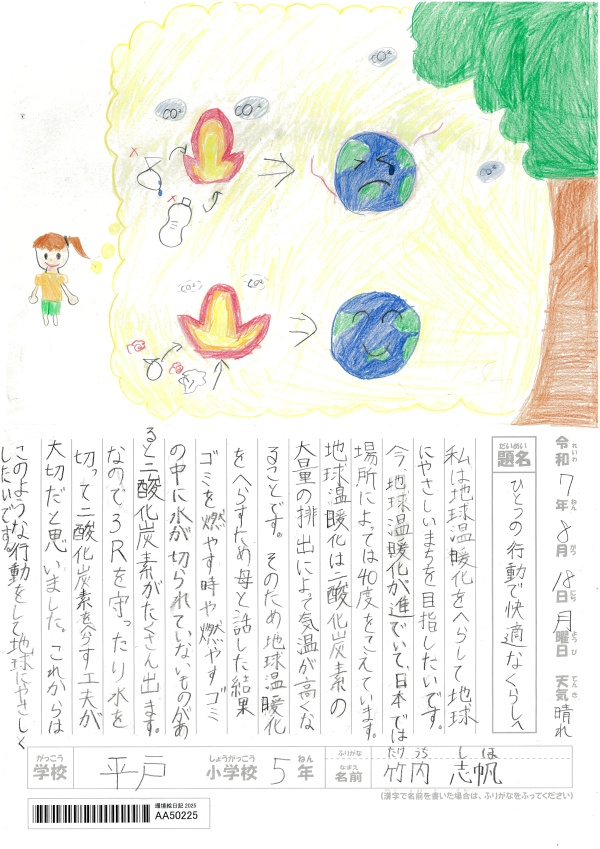 CO²
CO²
CO²
CO²
CO²
CO²
令和7年8月18日月曜日 天気 晴れ
れいわ ねん がつ にち ようび てんき
だいめい
題名
ひとつの行動で快適なくらしへ
私は地球温暖化をへらして地球
にやさしいまちを目指したいです。
今、地球温暖化が進でいて、日本では
場所によっては40度をこえています。
地球温暖化は二酸化炭素の
大量の排出によって気温が高くな
ることです。そのため地球温暖化
をへらすため母と話した結果
ゴミを燃やす時や燃やすゴミ
の中に水が切られていないものがあ
ると二酸化炭素がたくさん出ます。
なので3Rを守ったり水を
切って二酸化炭素をへらす工夫が
大切だと思いました。これからは
このような行動をして地球にやさしく
したいです。
がっこう
学校
平戸
しょうがっこう
小学校
5
ねん
年
ふりがな
なまえ
名前
たけ うち し ほ
竹内 志帆
(漢字で名前を書いた場合は、ふりがなをふってください)
環境絵日記 2025
AA50225